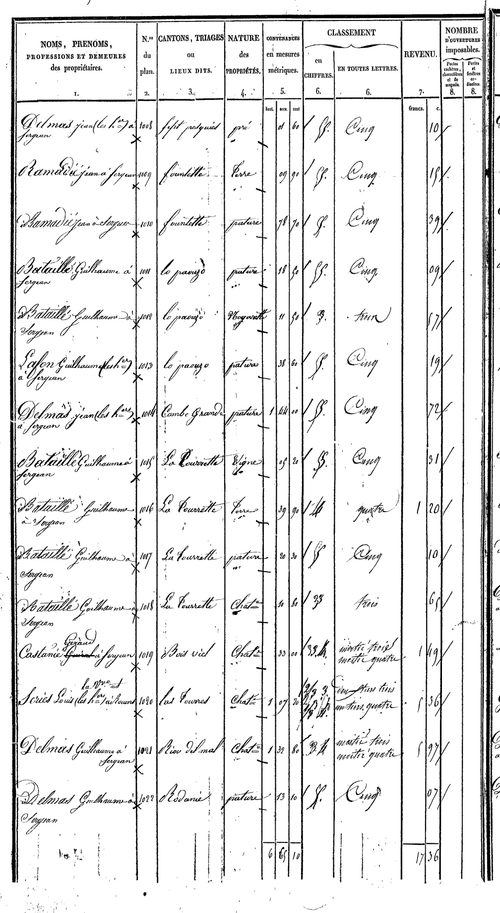 NOMS, PRENOMS, PROFESSIONS ET DEMEURES des propriétaires. N.os du plan. CANTONS, TRIAGES ou LIEUX DITS. NATURE des PROPRIÉTÉS. CONTENANCES en mesures métriques. CLASSEMENT en CHIFFRES. EN TOUTES LETTRES. REVENU. NOMBRE D'OUVERTURES imposables.
1. 2. 3. 4. 5. 6. 6. 7. 8. 8.
francs. c.
Delmas jean (les hers) à Sergean 1008 pré 01 60 5. Cinq 10
Ramadié jean à Sergean 1009 fountette Terre 09 90 5. Cinq 15
Ramadié jean à Sergean 1010 fountette pature 78 70 5. Cinq 39
Bataillé Guilhaume à Sergean 1011 lo paouzo pature 18 50 5. Cinq 09
Bataillé Guilhaume à Sergean 1012 lo paouzo 11 50 3. trois 57
Lafon Guilhaume (les hers) à Sergean 1013 lo paouzo pature 38 60 5. Cinq 19
Delmas jean (les hers) à Sergean 1014 Combo Grande pature 1 44 00 5. Cinq 72
Bataillé Guilhaume à Sergean 1015 La Tourrette Vigne 05 20 5. Cinq 31
Bataillé Guilhaume à Sergean 1016 La Tourrette Terre 39 90 4 quatre 1 20
Bataillé Guilhaume à Sergean 1017 La Tourrette pature 20 30 5 Cinq 10
Bataillé Guilhaume à Sergean 1018 La Tourrette Chat. 10 80 3 trois 65
Castanié Géraud à Sergean 1019 Bois viel Chat. 33 00 3. 4. moitié trois moitié quatre 1 49
Seriès Louis (les hers 1020 las Tourres Chat. 1 07 un tiers quatre 5 36
Delmas Guilhaume à Sergean 1021 Riou del mal Chat. 1 32 80 3 4 moitié trois moitié quatre 5 97
Delmas Guilhaume à Sergean 1022 Rodanié pature 13 10 5. Cinq 07
6 65 10 17 36